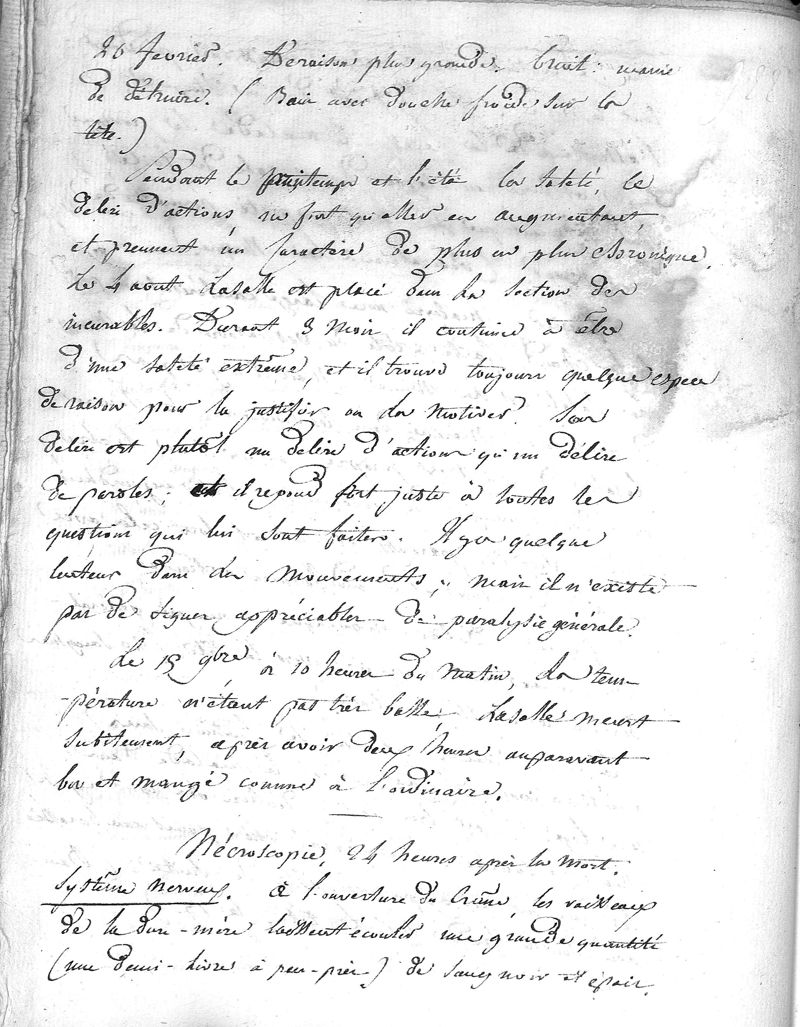 26 fevrier. Deraison plus grande. bruit: manie
de détruire. (Bain avec douche froide sur la
tête.)
Pendant le printemps et l'été la saleté, le
delire d'actions ne font qu'aller en augmentant,
et prennent un caractère de plus en plus chronique.
Le 4 aout Lasalle est placé dans la section des
incurables. Durant 3 mois il continue à être
d'une saleté extrême, et il trouve toujours quelque espece
de raison pour la justifier ou la motiver. Son
delire est plutôt un delire d'actions qu'un délire
de paroles; il repond fort juste à toutes les
questions qui lui sont faites. Il y a quelque
lenteur dans les mouvements; mais il n'existe
pas de signes appréciables de paralysie générale.
Le 15 9bre, à 10 heures du matin, la tem-
-pérature n'étant pas très basse, Lasalle meurt
subitement, après avoir deux heures auparavant
bu et mangé comme à l'ordinaire.
Nécroscopie, 24 heures après la mort.
Système nerveux. à l'ouverture du Crâne, les vaisseaux
de la dure-mère laissent écouler une grande quantité
(une demi-livre à peu-près) de sang noir et épais.